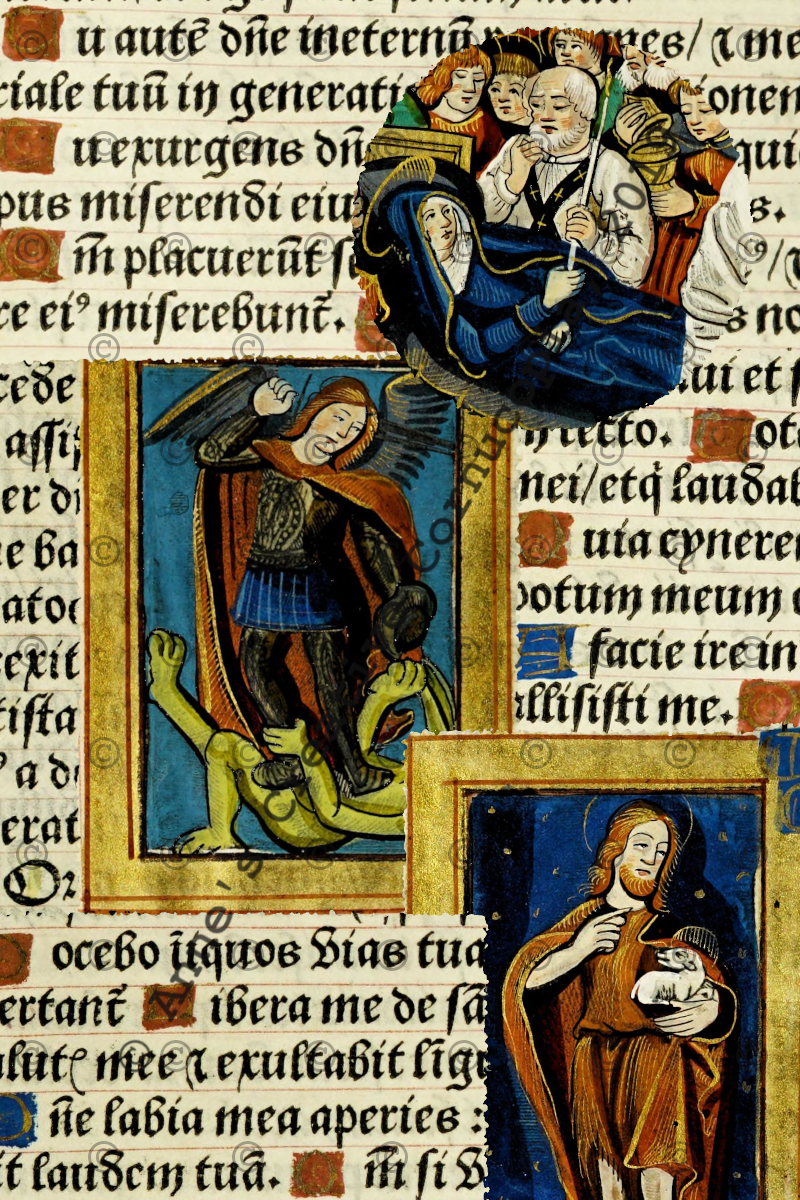 u autē dñe ineternū nes/ ⁊ me
riale tuū in generati onem
u exurgens dñ qui
pus miserendi eiu s.
m̄ placuerūt s ꝰ/⁊
re eiꝰ miserebunt̄. s no
cede ui et s
assis tecto. ot
er di nei/etq̄ laudab
e ba uia cynerem
ato potum meum c
rexit facie ire in
tista allisisti me.
ꝰ a d
erat
Or
ocebo īiquos vias tua
ertant̄ ibera me de sā
lutꝭ mee ⁊ exultabit līg
ñe labia mea aperies :
it laudem tuā. m̄ si v